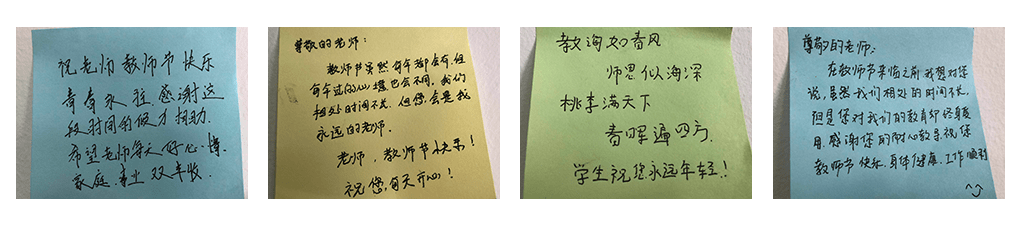 祝老师教师节快乐
青春永驻.感谢这
段时间的倾才相助.
希望老师每天好心情.
家庭.事业双丰收.
尊敬的老师:
教师节虽然每年都会有.但
每年过的心境也会不同.我们
相处时间不长.但您会是我
永远的老师.
老师,教师节快乐!
祝您,每天开心!
教诲如春风
师恩似海深
桃李满天下
春晖遍四方.
学生祝您永远年轻!!
尊敬的老师:
在教师节来临之前我想对您
说,虽然我们相处的时间不长,
但是您对我们的教育却终身受
用.感谢您的耐心教导.祝您
教师节快乐.身体健康.工作顺利